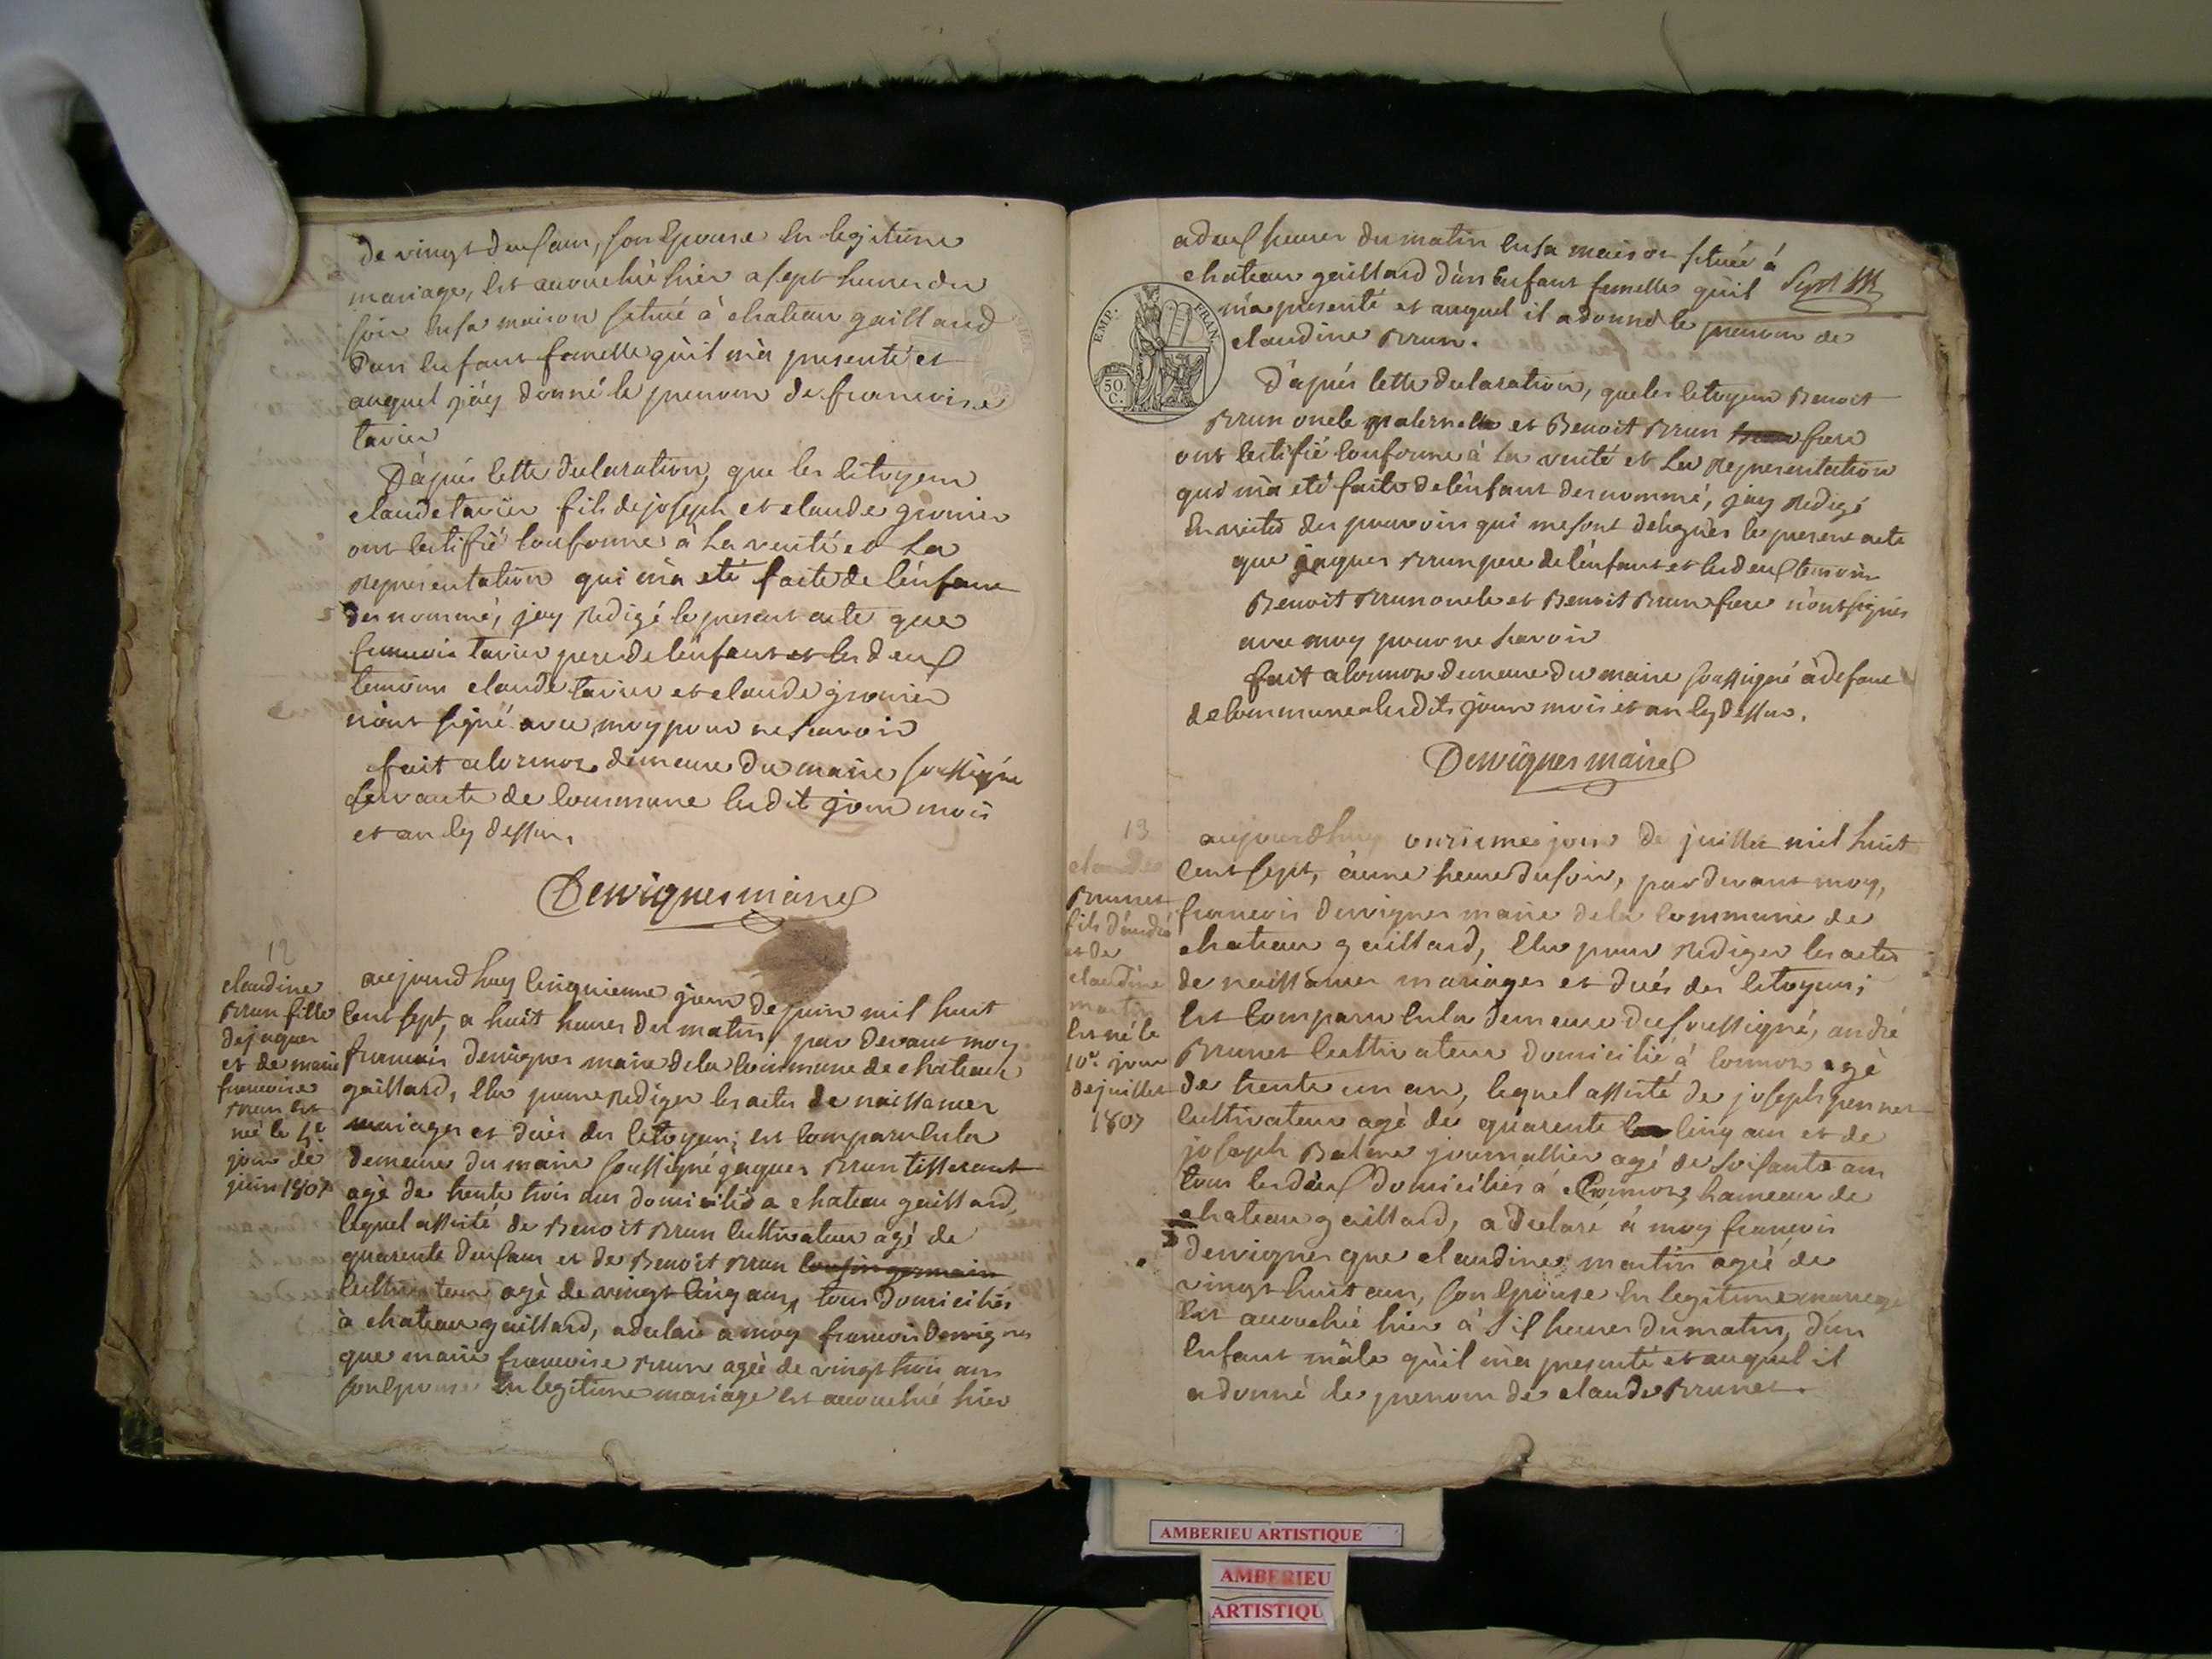 de vingt deux ans, son Epouse En legitime
mariage, Est accouchée hier a sept heures du
soir En sa maison située à chateau gaillard
d'un Enfant femelle qu'il m'a presenté et
auquel j'ay donné le prenom de francoise
tavier
D'apres cette declaration, que les Citoyens
claude tavier fils de joseph et claude gronier
ont Certifié Conforme à La verité et La
Representation qui m'a eté faite de l'enfant
denommé, j'ay Redigé le present acte que
francois tavier pere de l'enfant et les deux
temoins claude tavier et claude gronier
n'ont signé avec moy pour ne scavoir
fait a Cormoz demeure du maire soussigné
servante de Commune Lesdit jour mois
et an Cy dessus,
Dervignes maire
12
claudine
Brun fille
de jaques
et de marie
francoise
Brun Est
née le 4e
jour de
juin 1807
aujourd huy Cinquieme jour de juin mil huit
Cent sept, a huit heures du matin, par devant moy
francois Dervignes maire de la Commune de chateau
gaillard, Elu pour Rediger les actes de naissances
mariages et décès des Citoyens; est Comparu En la
demeure du maire soussigné jaques Brun tisserant
agé de trente trois ans domicilié a chateau gaillard,
lequel assisté de Benoit Brun Cultivateur agé de
quarente deux ans et de Benoit Brun Cousin germain
Cultivateur agé de vingt Cinq ans, tous domiciliés
à chateau gaillard, a declaré a moy francois Dervignes
que marie francoise Brun agée de vingt trois ans
son Epouse En legitime mariage Est accouchée hier
a deux heures du matin En sa maison située à
chateau gaillard d'un Enfant femelle qu'il
m'a presenté et auquel il a donné le prenom de
claudine Brun.
EMP. FRAN.
50. C.
D'apres Cette declaration, que les Citoyens Benoit
Brun oncle paternelle et Benoit Brun frere
ont Certifié Conforme à La verité et La Representation
qui m'a eté faite de l'enfant denommé, j'ay Redigé
En vertu des pouvoirs qui me sont delegués le present acte
que jaques Brun pere de l'enfant et les deux temoins
Benoit Brun oncle et Benoit Brun frere n'ont signés
avec moy pour ne scavoir
fait a Cormoz demeure du maire soussigné à defaut
de Commune Lesdits jour mois et an Cy dessus.
Dervignes maire
13
claude
Brunet
fils d'andré
et de
claudine
martin
Est né le
10e jour
de juillet
1807
aujourdhuy onzieme jour de juillet mil huit
Cent sept, à une heure du soir, par devant moy,
francois dervignes maire de la Commune de
chateau gaillard, Elu pour Rediger les actes
de naissances mariages et décés des Citoyens;
Est Comparu En la demeure du soussigné, andré
Brunet Cultivateur domicilié à Cormoz agé
de trente un an, lequel assisté de joseph
Cultivateur agé de quarente Cinq ans et de
joseph Balme journallier agé de Soixante ans
tous les deux domiciliés à Cormoz, hameau de
chateau gaillard, a declaré à moy francois
dervignes que claudine martin agée de
vingt huit ans, son Epouse En legitime mariage
Est accouchée hier à six heures du matin, d'un
Enfant mâle qu'il m'a presenté et auquel il
a donné le prenom de claude Brunet.
AMBERIEU ARTISTIQUE
AMBERIEU
ARTISTIQU